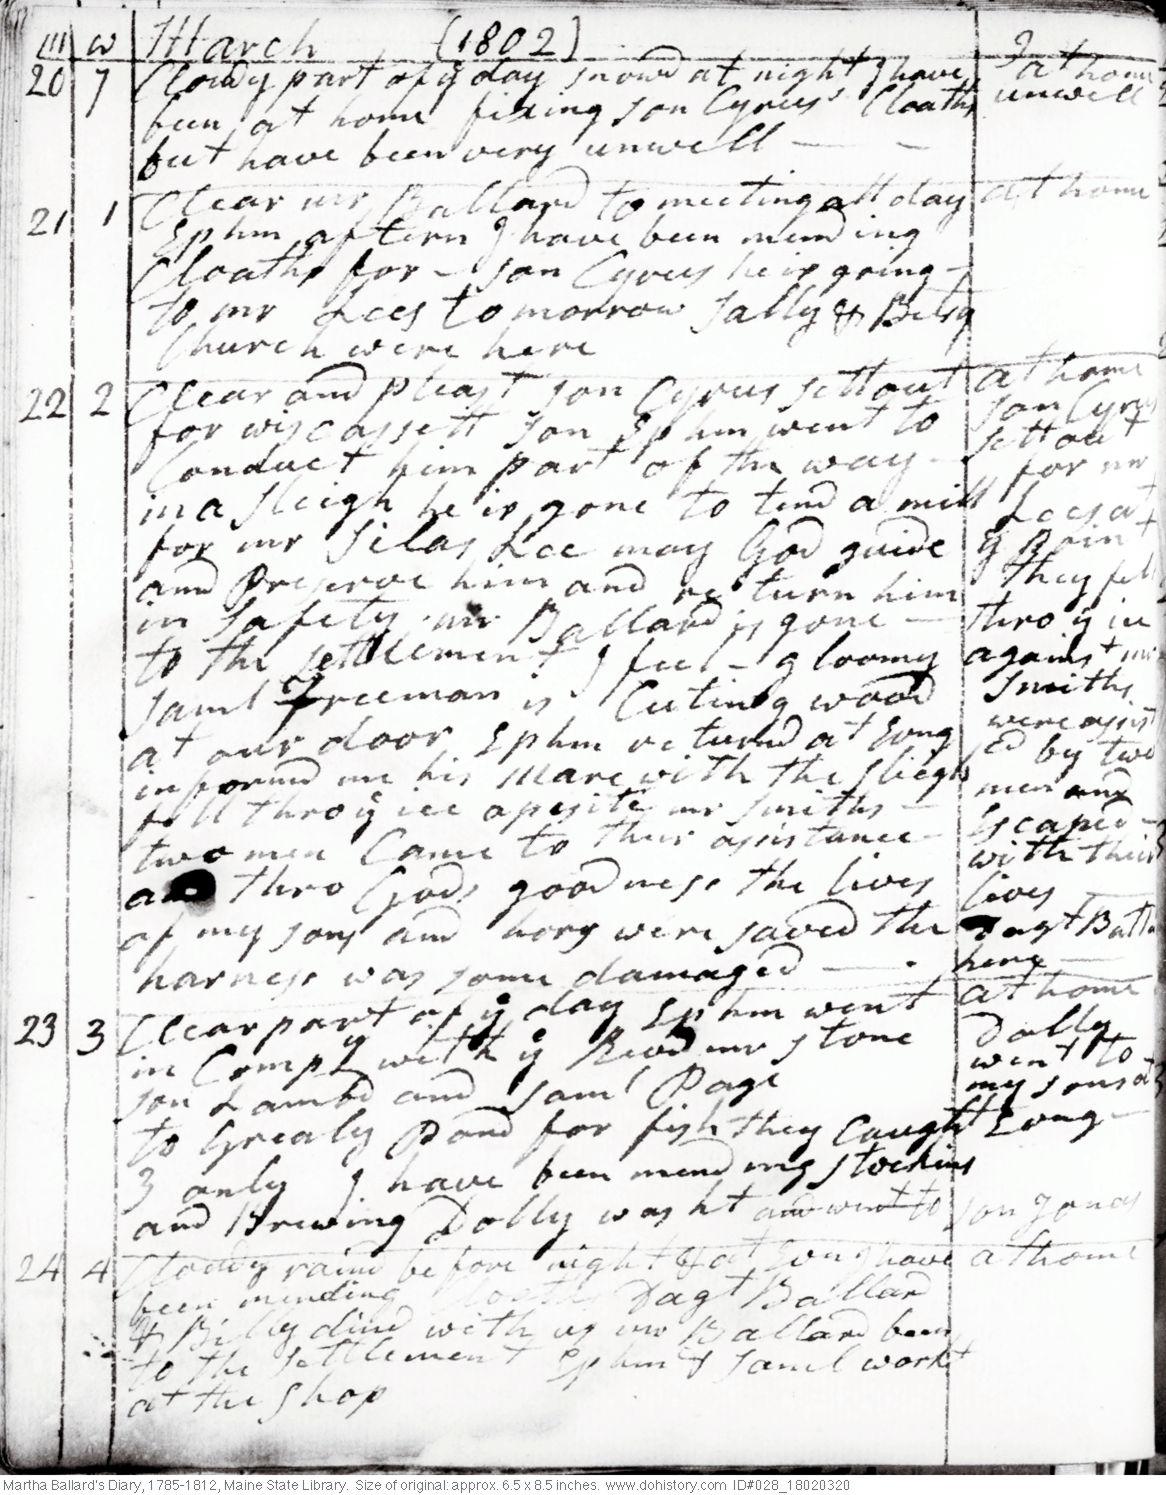 m w March (1802)
20 7 Cloudy part of ÿ day snowd at night I have
been at home fixing son Cyrus's Cloaths
but have been very unwell — —
at home
unwell
21 1 Clear mr Ballard to meeting all day
Ephm aftern I have been mending
Cloaths for – son Cyrus he is going –
to mr Lees tomorrow Sally & Betsy
Church were here
at home
22 2 Clear and pleast son Cyrus sett out
for wiscassett son Ephm went to
Conduct him part of the way –
in a Sleigh he is gone to tend a mill
for mr Silas Lee may God guide
and Preserve him and return him
in safety mr Ballard is gone –
to the settlement I feel – gloomy
Saml Freeman is Cuting wood
at our door Ephm returnd at Evng
informd me his mare with the sliegh
fell thro ÿ ice aposite mr Smiths –
two men Came to their assistance –
and thro Gods goodness the lives
of my sons and hors were saved the
harness was some damaged — .
at home
son Cyrus
sett out
for mr
Lees at
ÿ Point
they fell
thro ÿ ice
against mr
Smiths
were assist
ed by two
men and
Escaped –
with their
lives
Dagt Balld
here —
23 3 Clear part of ÿ day Ephm went
in Compy with ÿ Revd mr Stone
son Lambd and Saml Page
to Grealy Pond for fish they Caught
3 only I have been mending stockins
and Brewing Dolly washt and went to son Jonas
at home
Dolly
went to
my sons at
Evng –
24 4 Cloudy raind before night & at Evng I have
been mending Cloaths Dagt Ballard
& Billy dind with us mr Ballard been
to the settlement Ephm & Saml workt
at the shop
at home
Martha Ballard's Diary, 1785-1812, Maine State Library. Size of original: approx. 6.5 x 8.5 inches. www.dohistory.com ID#028_18020320